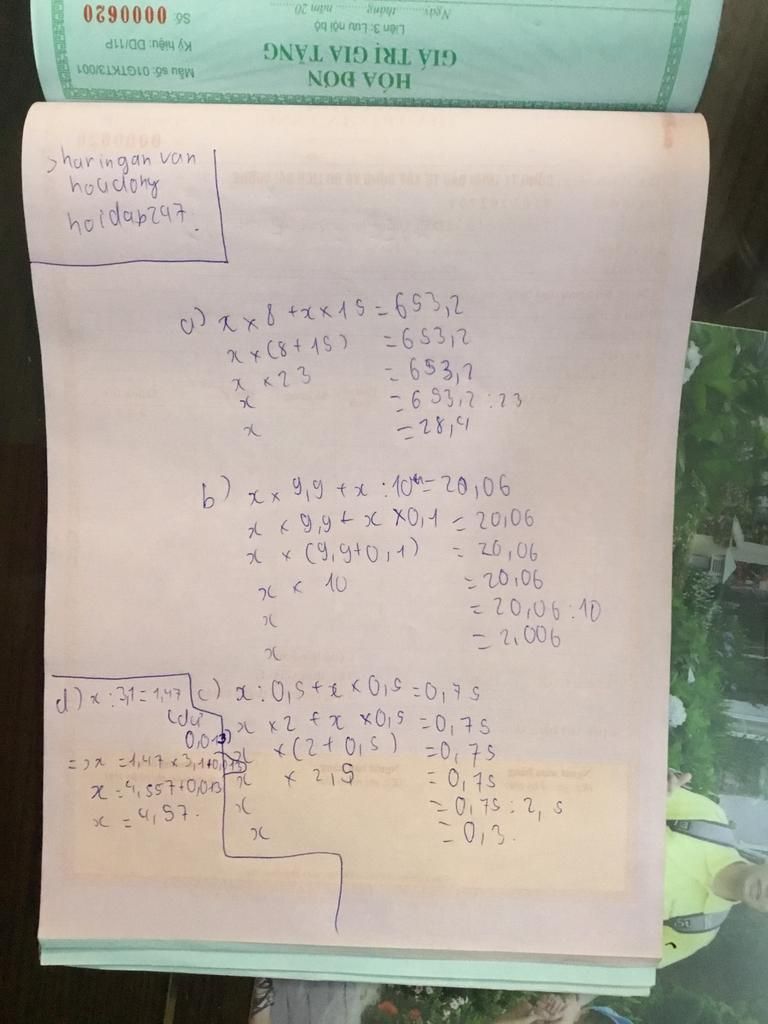 Mẫu số: 01GTKT3/001
Ký hiệu: DD/11P
Số: 0000620
HÓA ĐƠN
GIÁ TRỊ GIA TĂNG
Liên 3: Lưu nội bộ
Ngày tháng năm 20
sharingan van
houdong
hoidap247.
a) x × 8 + x × 15 = 653,2
x × (8 + 15) = 653,2
x × 23 = 653,2
x = 653,2 : 23
x = 28,4
b) x × 9,9 + x : 10 = 20,06
x × 9,9 + x × 0,1 = 20,06
x × (9,9 + 0,1) = 20,06
x × 10 = 20,06
x = 20,06 : 10
x = 2,006
c) x : 0,5 + x × 0,5 = 0,75
x × 2 + x × 0,5 = 0,75
x × (2 + 0,5) = 0,75
x × 2,5 = 0,75
x = 0,75 : 2,5
x = 0,3.
d) x : 3,1 = 1,47
(dư
0,013)
=> x = 1,47 × 3,1 + 0,013
x = 4,557 + 0,013
x = 4,57.